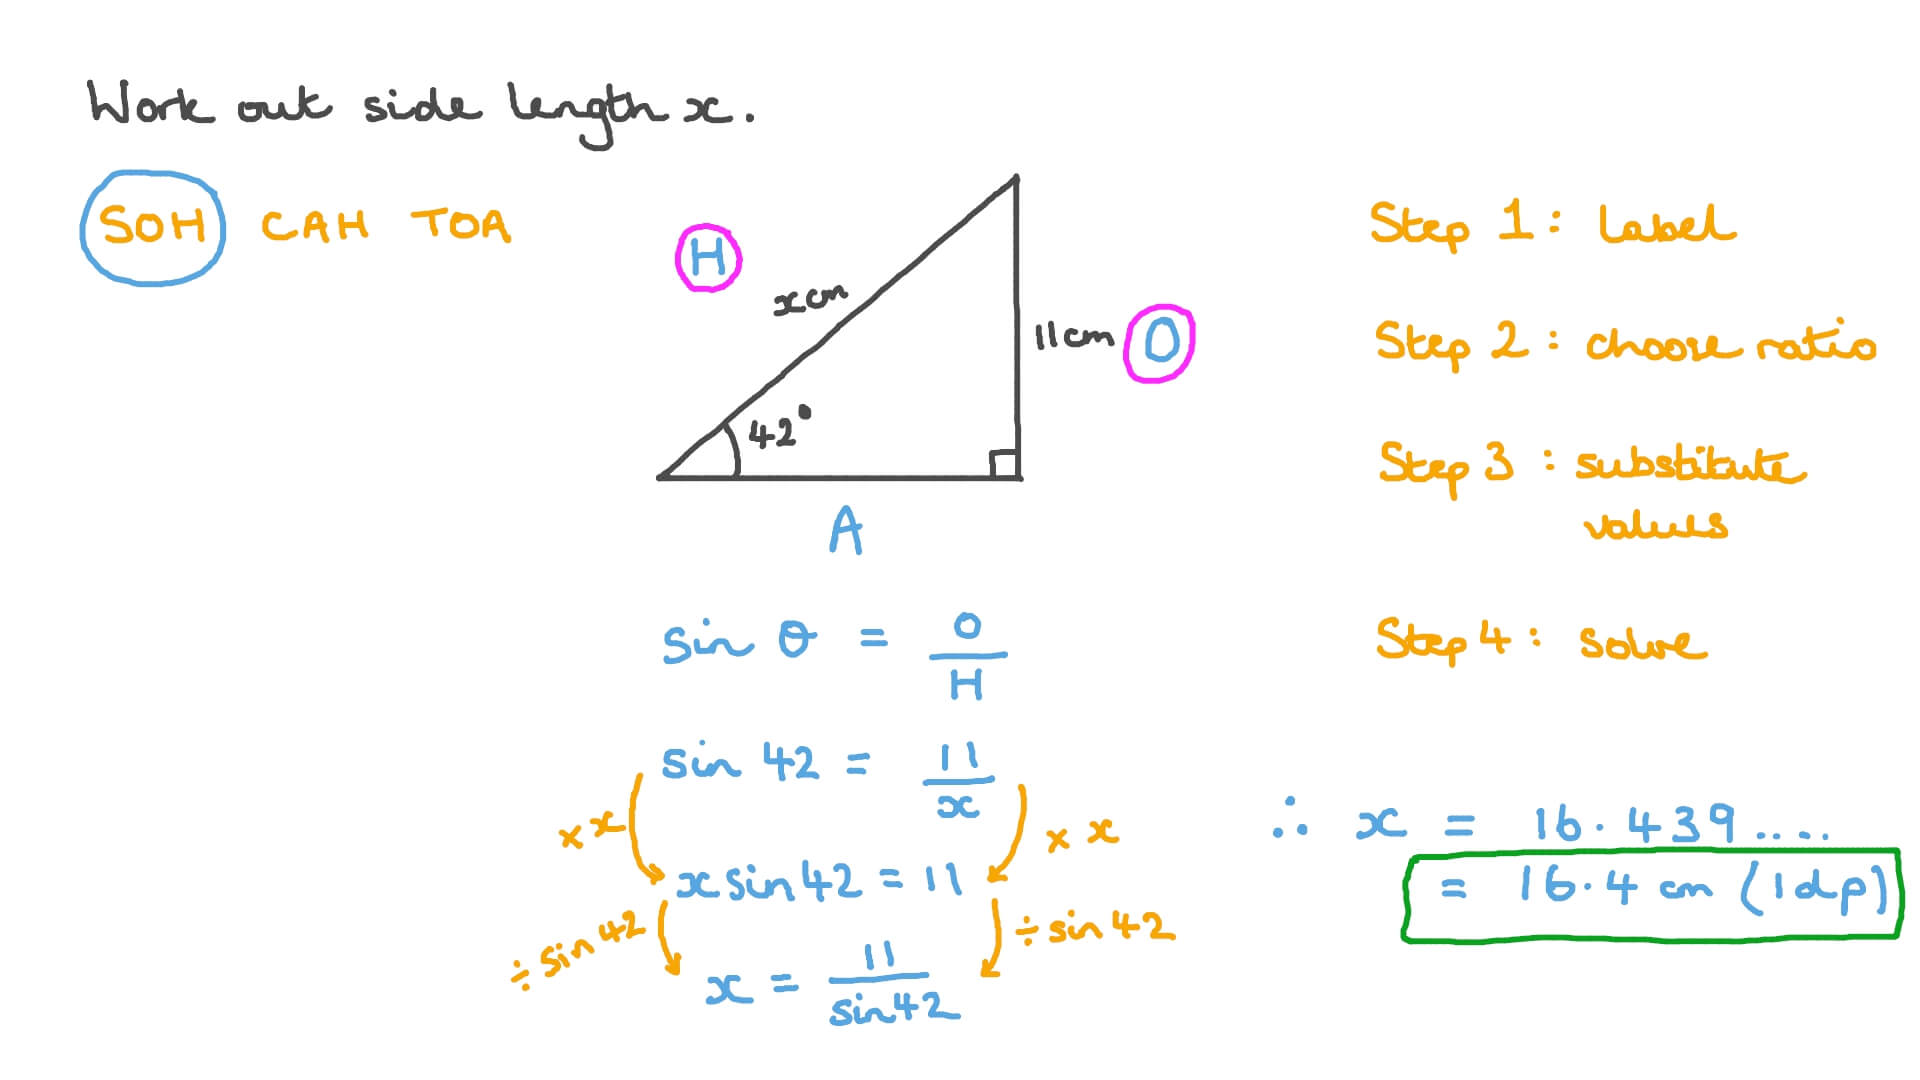 Work out side length x.
SOH CAH TOA
H
x cm
11cm
O
42°
A
Step 1: Label
Step 2: choose ratio
Step 3: substitute
values
Step 4: solve
sin θ = O/H
sin 42 = 11/x
× x
× x
x sin 42 = 11
÷ sin 42
÷ sin 42
x = 11/sin 42
∴ x = 16.439....
= 16.4 cm (1dp)